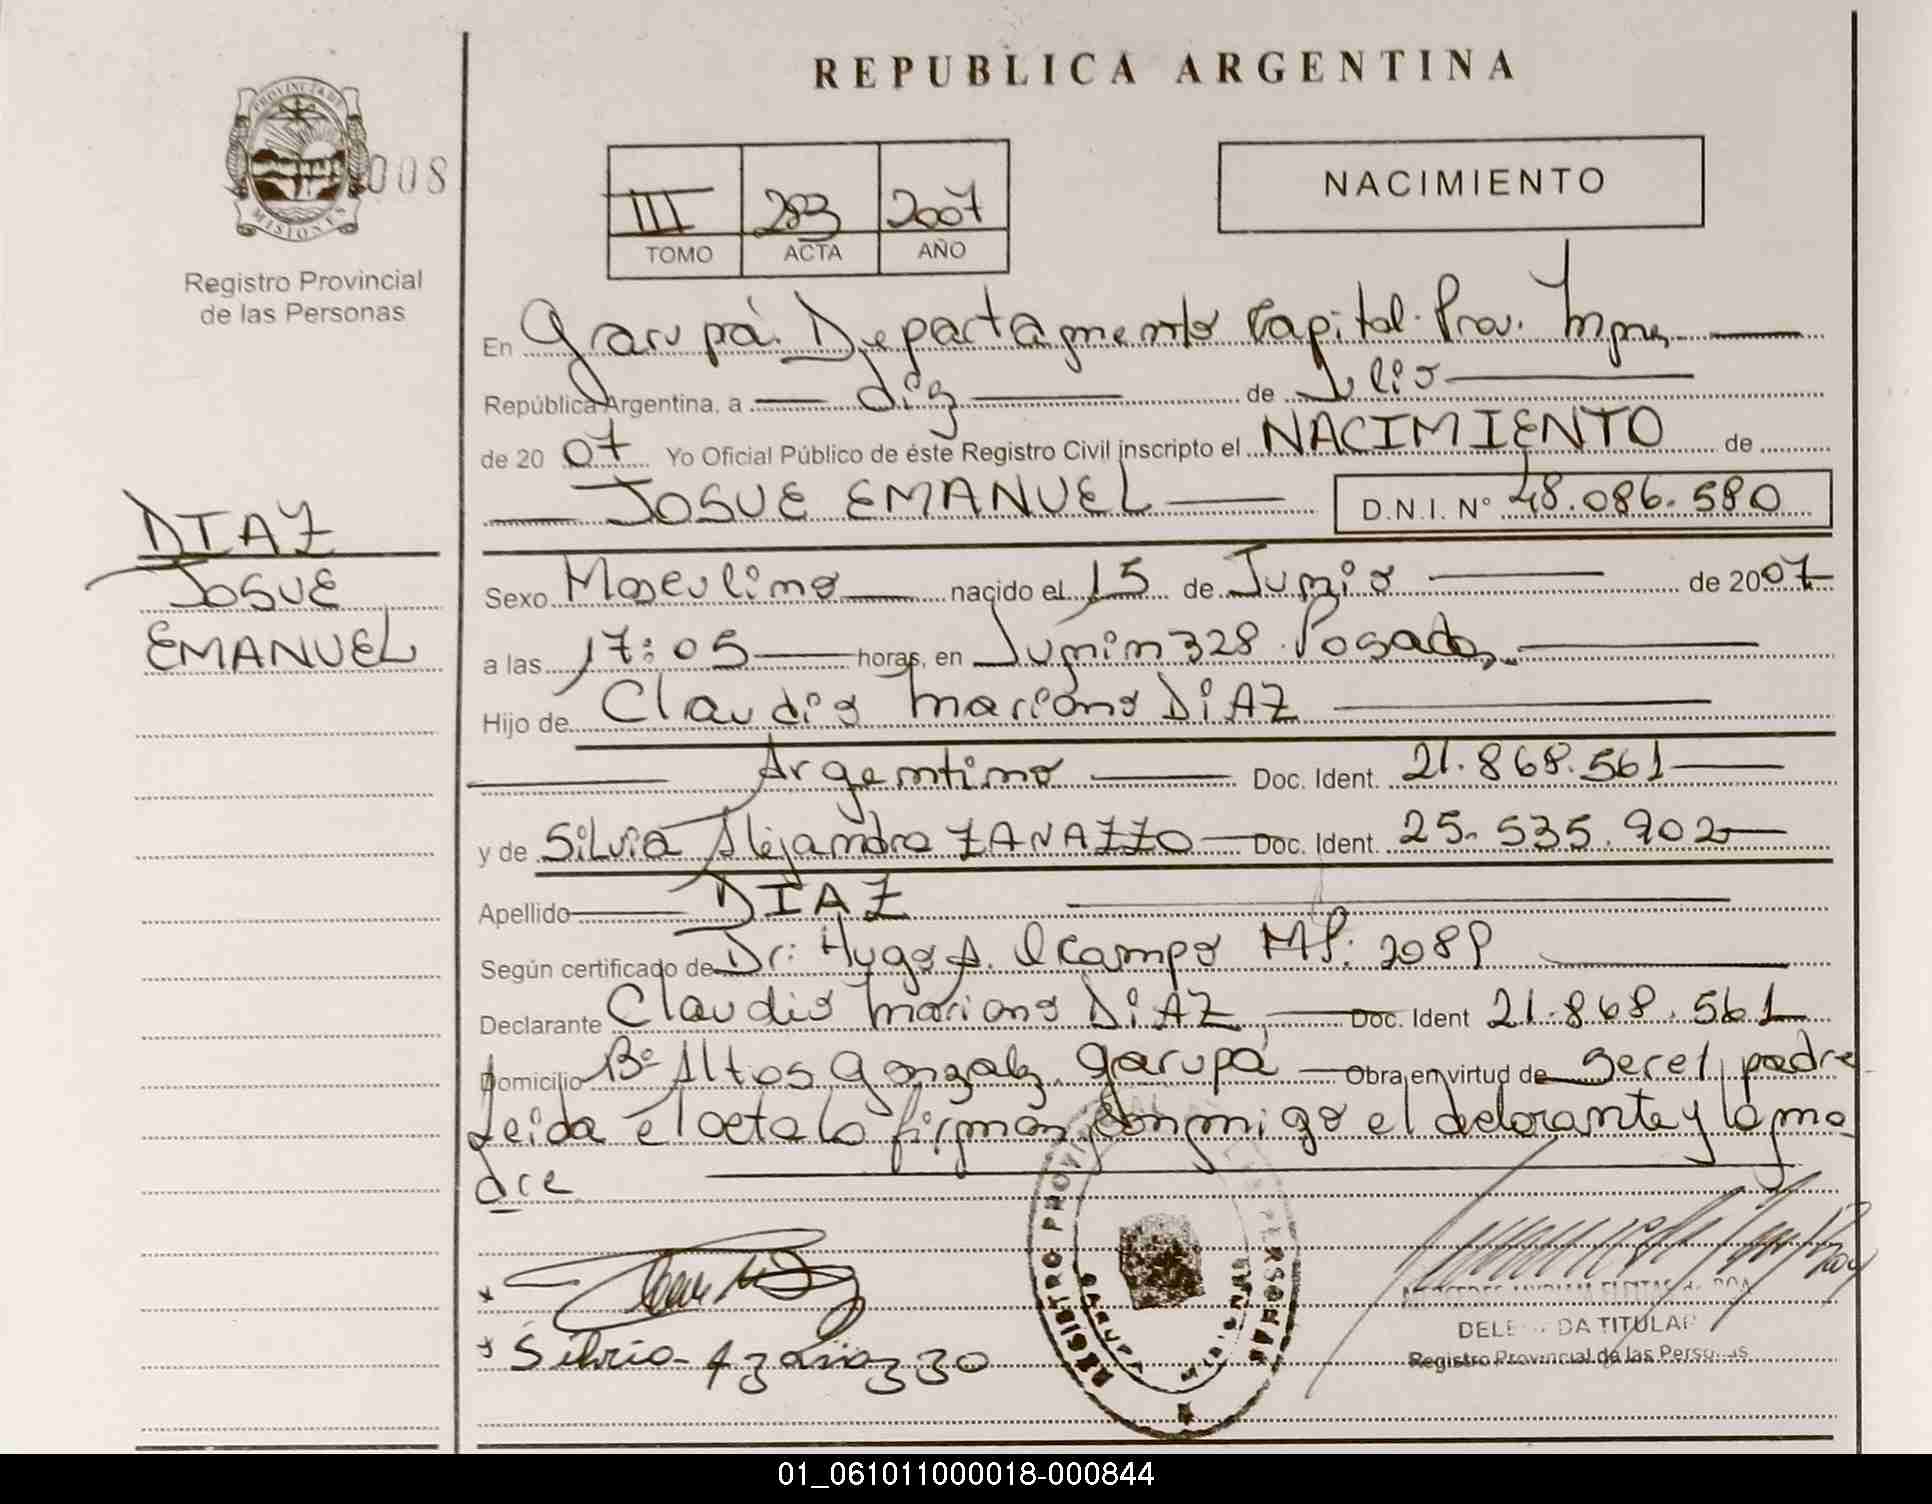 REPUBLICA ARGENTINA
PROVINCIA DE
MISIONES
008
Registro Provincial
de las Personas
III 283 2007
TOMO ACTA AÑO
NACIMIENTO
En Garupá. Departamento Capital. Prov. Mnes
República Argentina, a diez de Julio
de 2007 Yo Oficial Público de éste Registro Civil inscripto el NACIMIENTO de
JOSUE EMANUEL D.N.I. N° 48.086.580
DIAZ
JOSUE
EMANUEL
Sexo Masculino nacido el 15 de Junio de 2007
a las 17:05 horas, en Junin 328. Posadas
Hijo de Claudio Mariano DiAZ
Argentino Doc. Ident. 21.868.561
y de Silvia Alejandra ZANAZZO Doc. Ident. 25.535.902
Apellido DIAZ
Según certificado de Dr: Hugo A. Ocampo MP: 2089
Declarante Claudio Mariano DiAZ Doc. Ident 21.868.561
Domicilio B° Altos Gonzalez. Garupá Obra en virtud de ser el padre
Leida el acta la firman conmigo el declarante y la ma
dre
Silvia A Zanazzo
REGISTRO PROVINCIAL DE LAS PERSONAS
GARUPA
MISIONES
DELEGADA TITULAR
Registro Provincial de las Personas
01_061011000018-000844